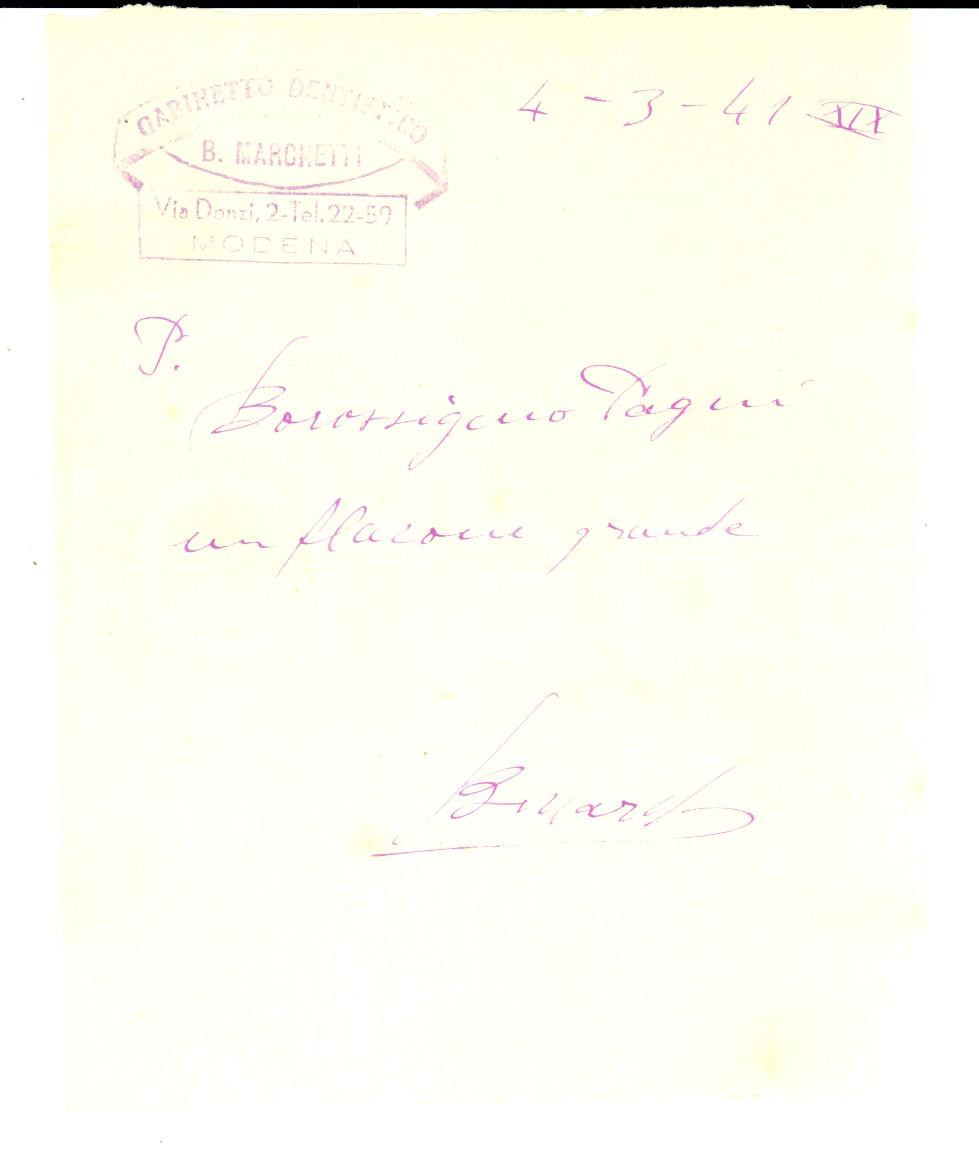 GABINETTO DENTISTICO
B. MARCHETTI
Via Donzi, 2-Tel. 22-59
MODENA
4 - 3 - 41 XIX
P.
Borossigeno Tagni
un flacone grande